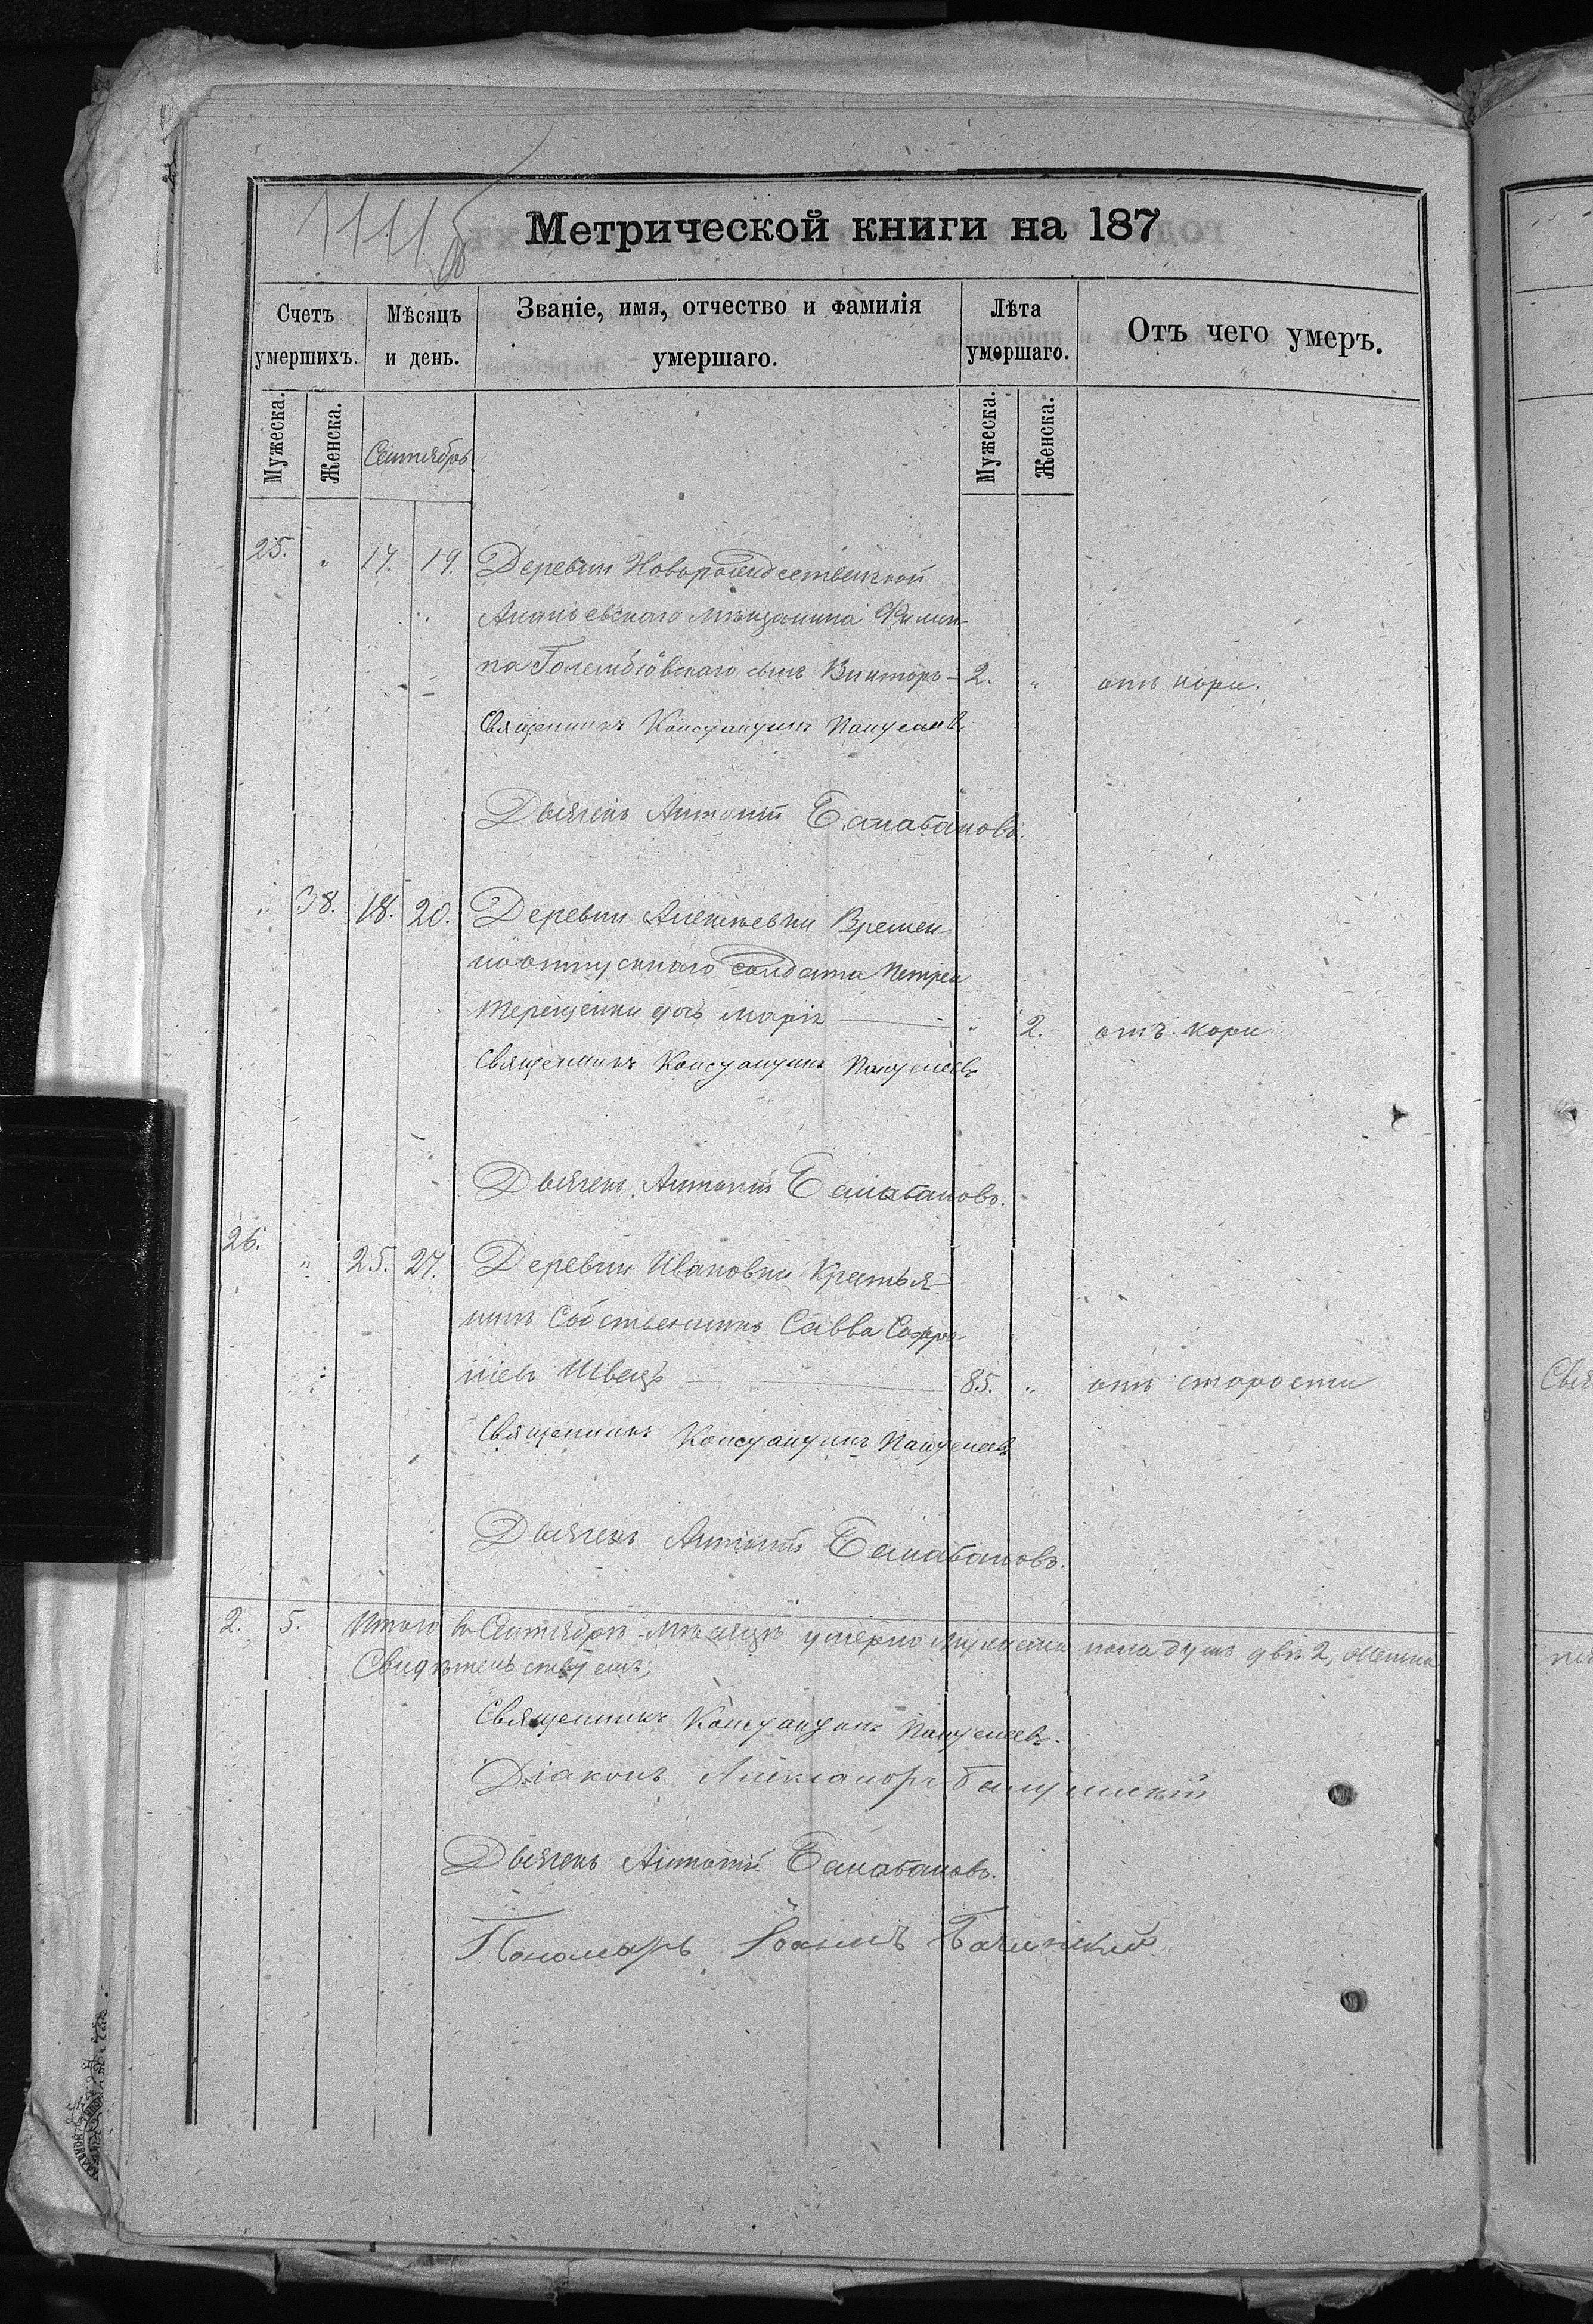 1111 об
Метрической книги на 187
Счетъ умершихъ.
Мѣсяцъ и день.
Званіе, имя, отчество и фамилія умершаго.
Лѣта умершаго.
Отъ чего умеръ.
Мужеска.
Женска.
Сентябрь
Мужеска.
Женска.
25. " 17. 19. Деревни Новорождественской
Ананьевскаго мѣщанина Филип-
па Голембіовскаго сынъ Викторъ - 2. " отъ кори.
Священникъ Константинъ
Дьячекъ Антоній Балабановъ.
" 38. 18. 20. Деревни Алексѣевки Времен-
ноотпускнаго солдата Петра
Терещенки дочь Марія " 2. отъ кори
Священникъ Константинъ
Дьячекъ Антоній Балабановъ.
26. " 25. 27. Деревни Ивановки Крестья-
нинъ Собственникъ Савва Софро-
ніевъ Швецъ 85. " отъ старости
Священникъ Константинъ
Дьячекъ Антоній Балабановъ.
2. 5. Итого въ Сентябрѣ мѣсяцѣ умерло мужеска пола душъ двѣ 2, женска
Свидѣтельствуемъ;
Священникъ Константинъ
Діаконъ Александръ
Дьячекъ Антоній Балабановъ.
Пономарь Іоаннъ Бачинскій